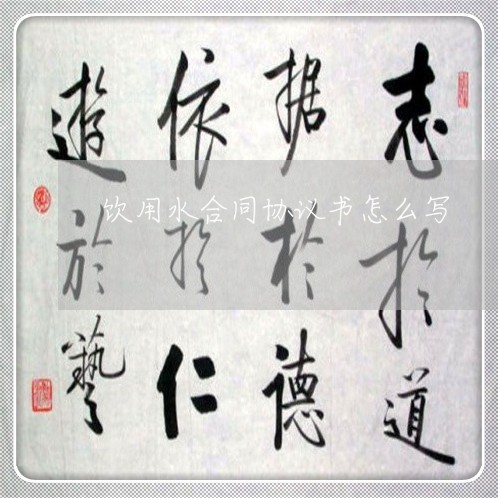 志扵道
据扵德
依扵仁
遊於藝
饮用水合同协议书怎么写